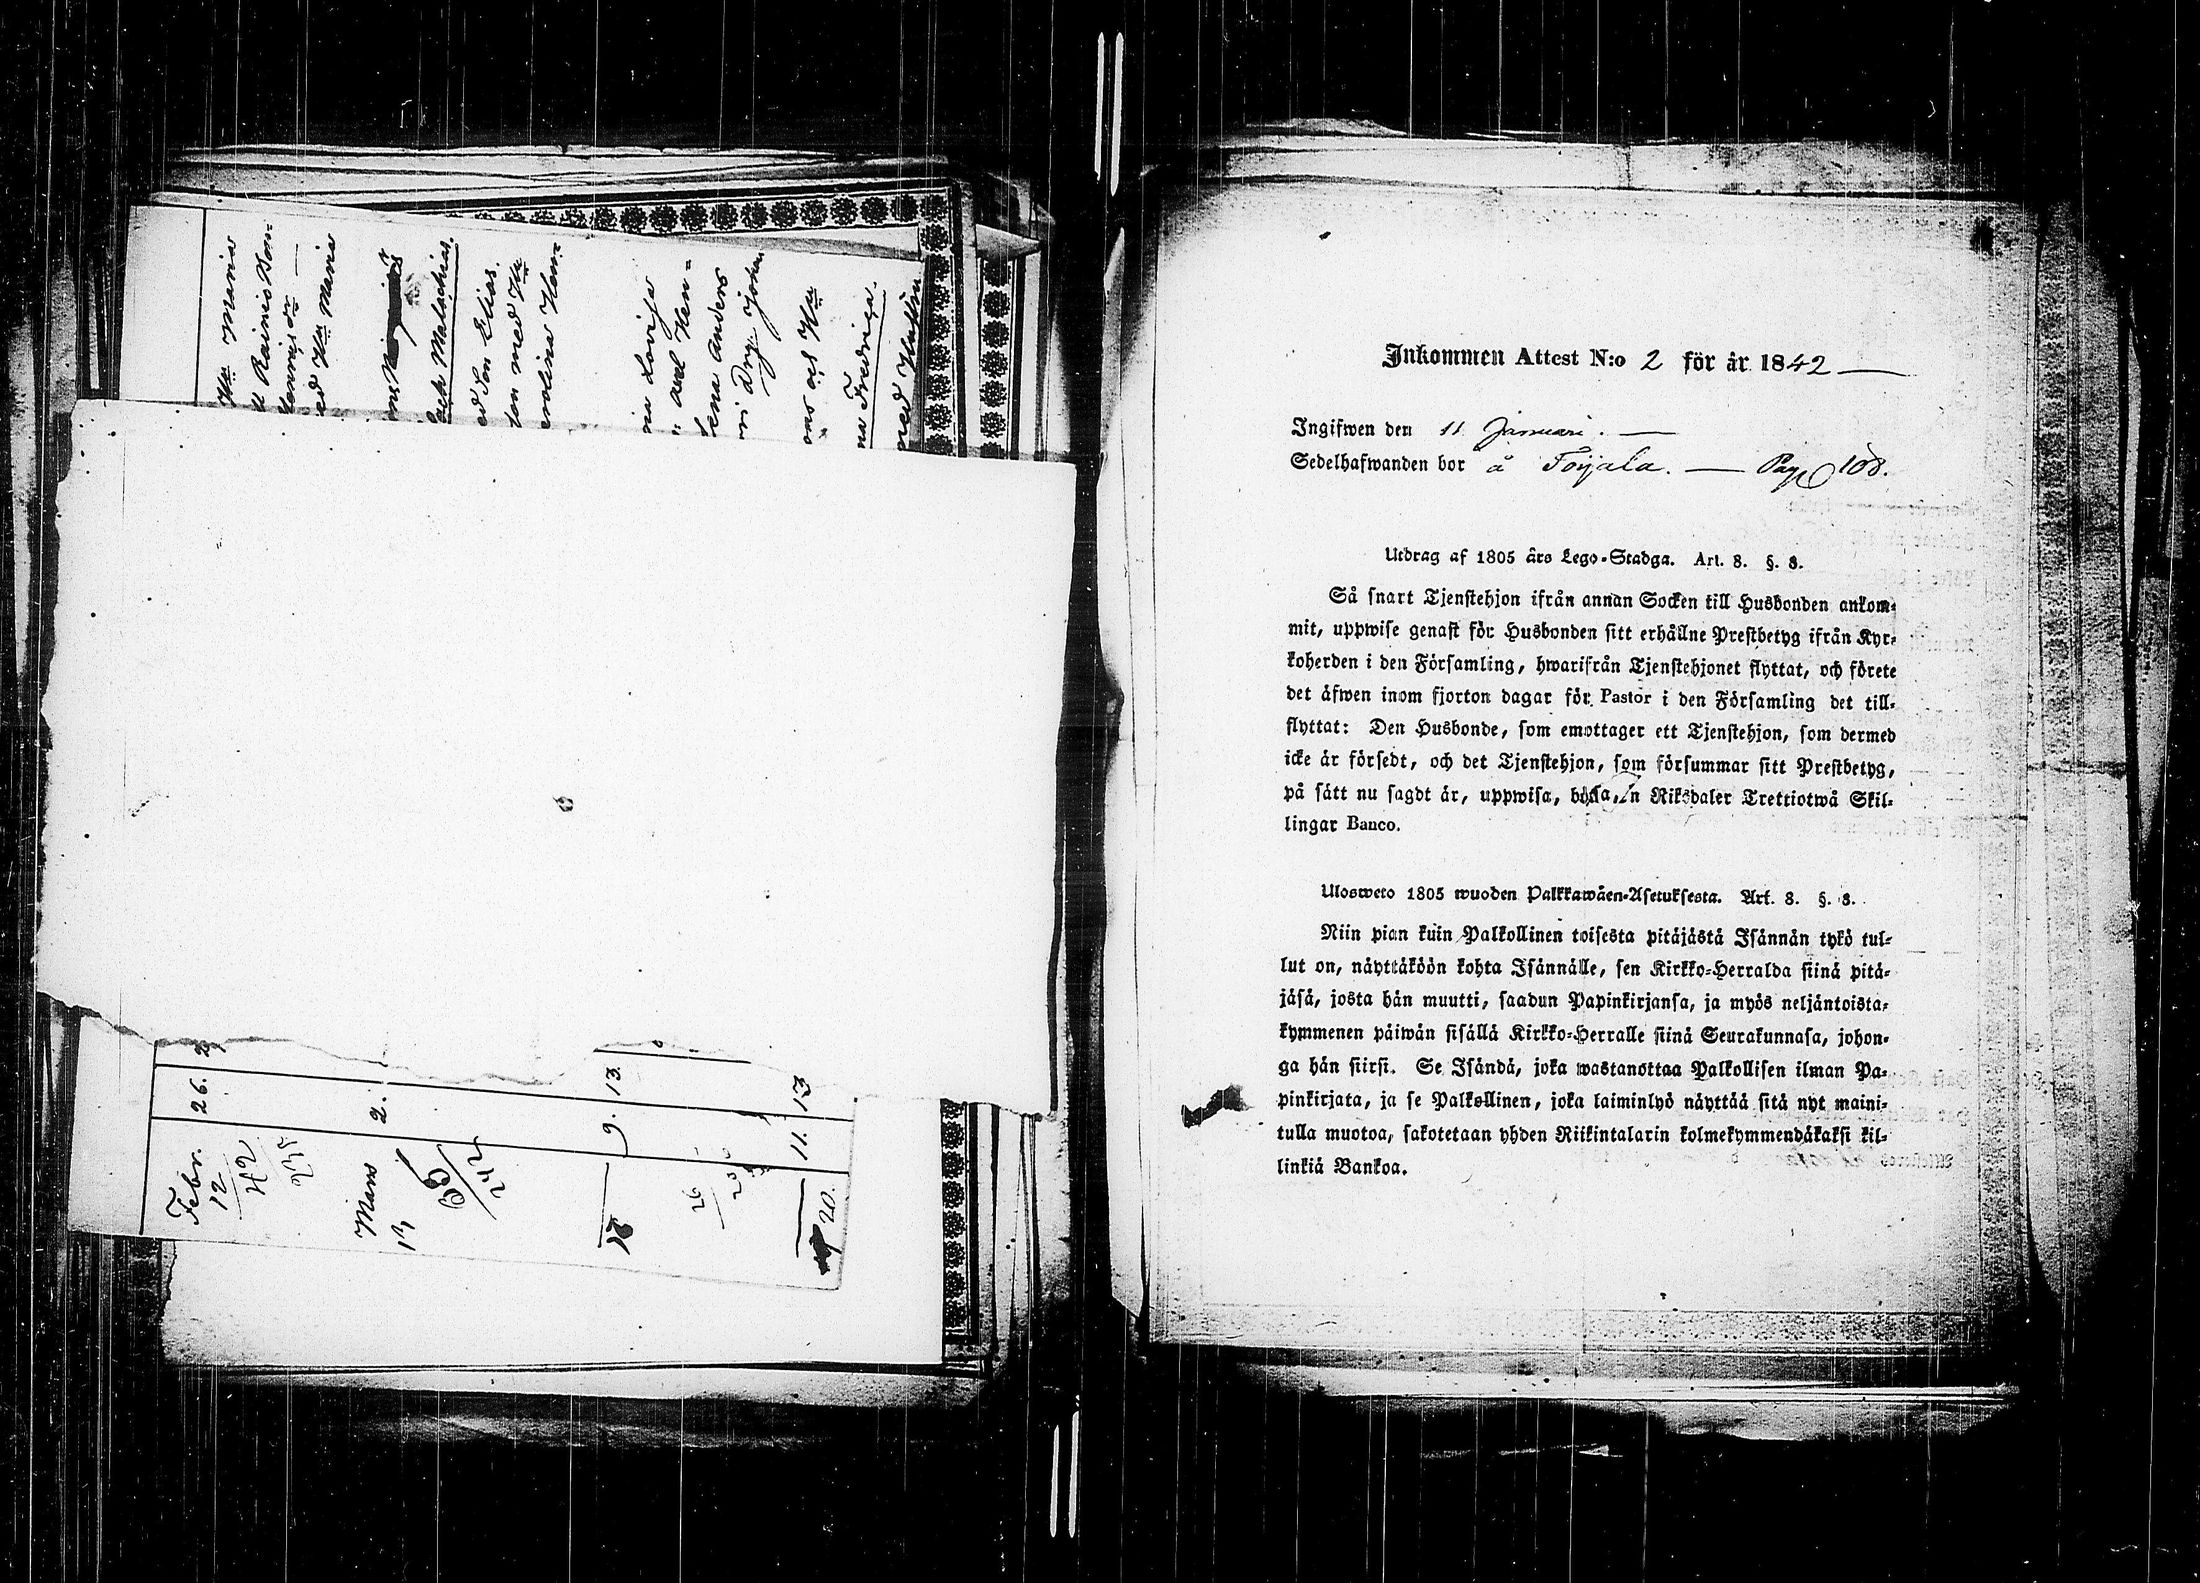 Hu Maria
Rainio Bon=
med Hu Maria
och Malachias.
ed Son Elias.
ten med Hu
rolina Hen=
na Lovisa
Axel Hen=
Lena Anders
ri Drg Johan
och Hu
na Fredrica.
med Hustru
26.
2.
9. 13.
11. 13
Febr.
12
42
Mars
13
65
242
20.
Inkommen Attest N:o 2 för år 1842
Ingifwen den 11 Januari.
Sedelhafwanden bor å Toijala. Pag 108.
Utdrag af 1805 års Lego-Stadga. Art. 8. §. 8.
Så snart Tjenstehjon ifrån annan Socken till Husbonden ankom-
mit, uppwise genast för Husbonden sitt erhållne Prestbetyg ifrån Kyr-
koherden i den Församling, hwarifrån Tjenstehjonet flyttat, och förete
det äfwen inom fjorton dagar för Pastor i den Församling det till-
flyttat: Den Husbonde, som emottager ett Tjenstehjon, som dermed
icke är försedt, och det Tjenstehjon, som försummar sitt Prestbetyg,
på sätt nu sagdt är, uppwisa, böta, En Riksdaler Trettiotwå Skil-
lingar Banco.
Ulosweto 1805 wuoden Palkkawäen-Asetuksesta. Art. 8. §. 8.
Niin pian kuin Palkollinen toisesta pitäjästä Isännän tykö tul-
lut on, näyttäköön kohta Isännälle, sen Kirkko-Herralda siinä pitä-
jäsä, josta hän muutti, saadun Papinkirjansa, ja myös neljäntoista-
kymmenen päiwän sisällä Kirkko-Herralle siinä Seurakunnasa, johon-
ga hän siirsi. Se Isändä, joka wastanottaa Palkollisen ilman Pa-
pinkirjata, ja se Palkollinen, joka laiminlyö näyttää sitä nyt maini-
tulla muotoa, sakotetaan yhden Riikintalarin kolmekymmendäkaksi kil-
linkiä Bankoa.